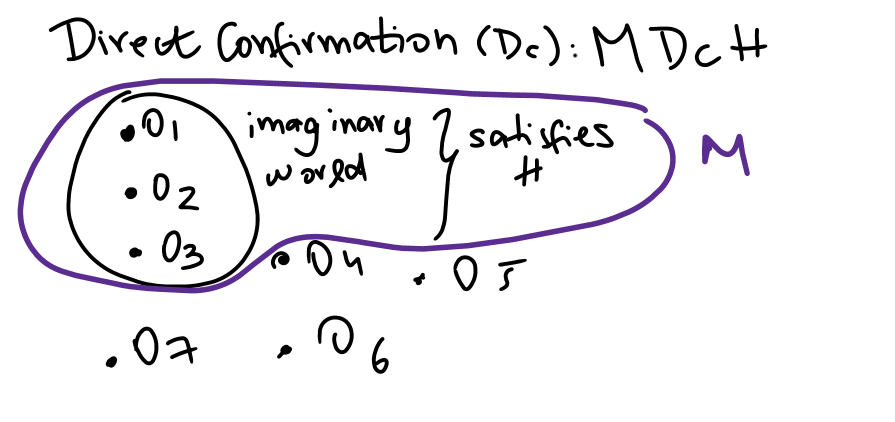 Direct Confirmation (Dc): M Dc H
O1 imaginary world } satisfies H
M
O2
O3
O4
O5
O7
O6